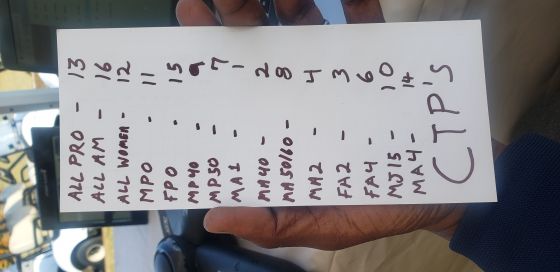 ALL PRO - 13
ALL AM - 16
ALL WOMEN - 12
MPO - 11
FPO - 15
MP40 - 9
MP50 - 7
MA1 - 1
MA40 - 2
MA50/60 - 8
MA2 - 4
FA2 - 3
FA4 - 6
MJ15 - 10
MA4 - 14
CTP's